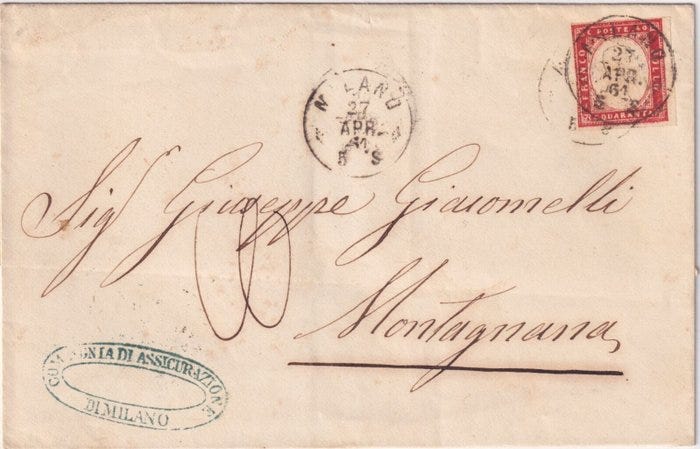 FRANCO POSTE BOLLO
C. QUARANTA
MILANO
27
APR.
61
5 S
MILANO
27
APR.
61
5 S
Sig.r Giuseppe Giacomelli
Montagnana
COMPAGNIA DI ASSICURAZIONE
DI MILANO